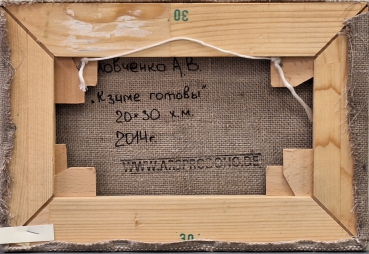 30
А.В.
"К зиме готовы"
20*30 х.м.
2014г.
WWW.ARSPRODONO.DE
30